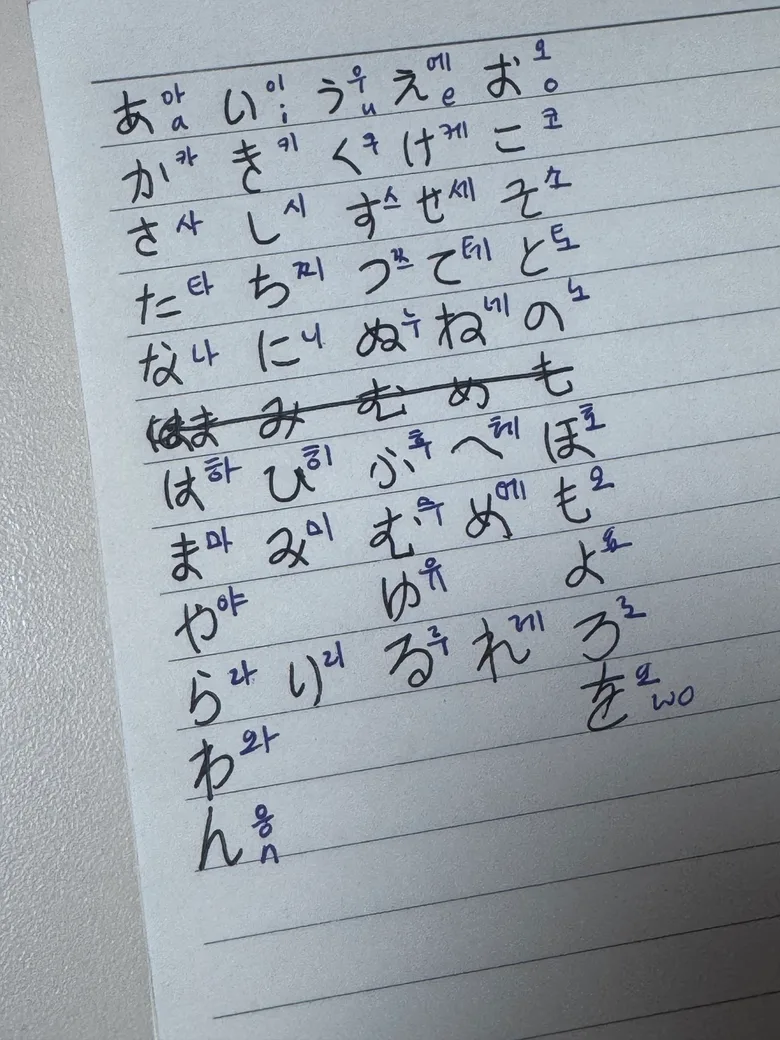 あ 아 a い 이 i う 우 u え 에 e お 오 o
か 카 き 키 く 쿠 け 케 こ 코
さ 사 し 시 す 스 せ 세 そ 소
た 타 ち 찌 つ 쯔 て 테 と 토
な 나 に 니 ぬ 누 ね 네 の 노
ま み む め も
は 하 ひ 히 ふ 후 へ 헤 ほ 호
ま 마 み 미 む 무 め 메 も 모
や 야 ゆ 유 よ 요
ら 라 り 리 る 루 れ 레 ろ 로
わ 와 を 오 wo
ん 응 n